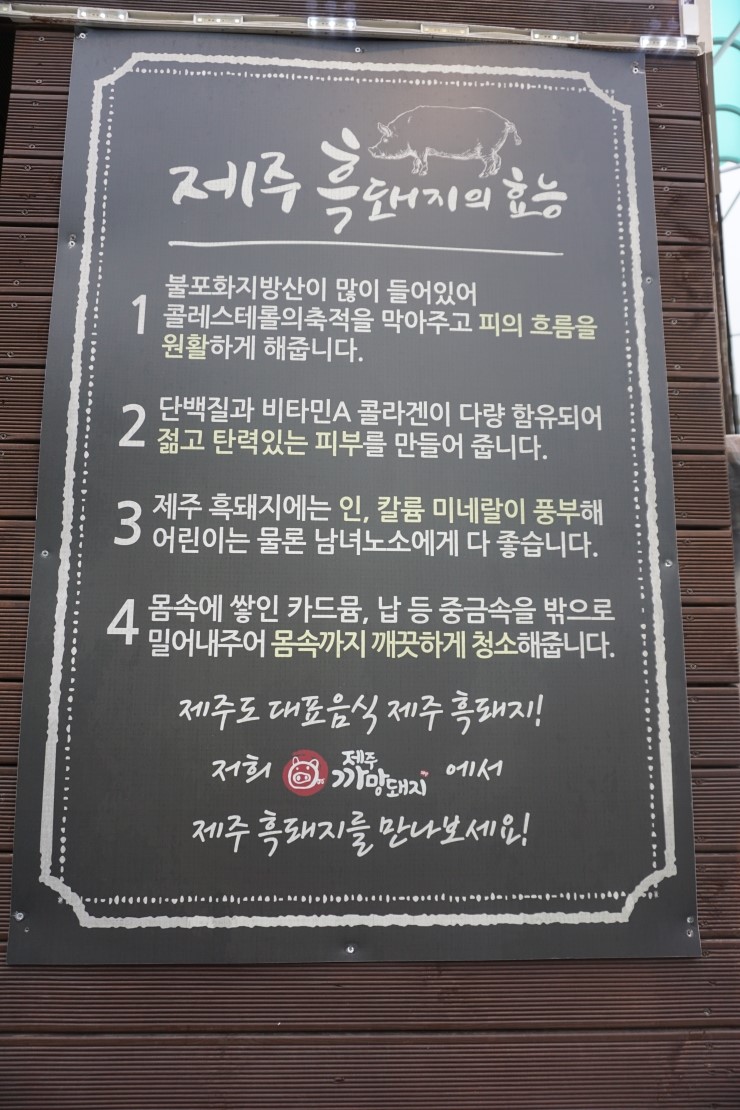 제주 흑돼지의 효능
1 불포화지방산이 많이 들어있어
콜레스테롤의축적을 막아주고 피의 흐름을
원활하게 해줍니다.
2 단백질과 비타민A 콜라겐이 다량 함유되어
젊고 탄력있는 피부를 만들어 줍니다.
3 제주 흑돼지에는 인, 칼륨 미네랄이 풍부해
어린이는 물론 남녀노소에게 다 좋습니다.
4 몸속에 쌓인 카드뮴, 납 등 중금속을 밖으로
밀어내주어 몸속까지 깨끗하게 청소해줍니다.
제주도 대표음식 제주 흑돼지!
저희 제주 까망돼지 에서
제주 흑돼지를 만나보세요!